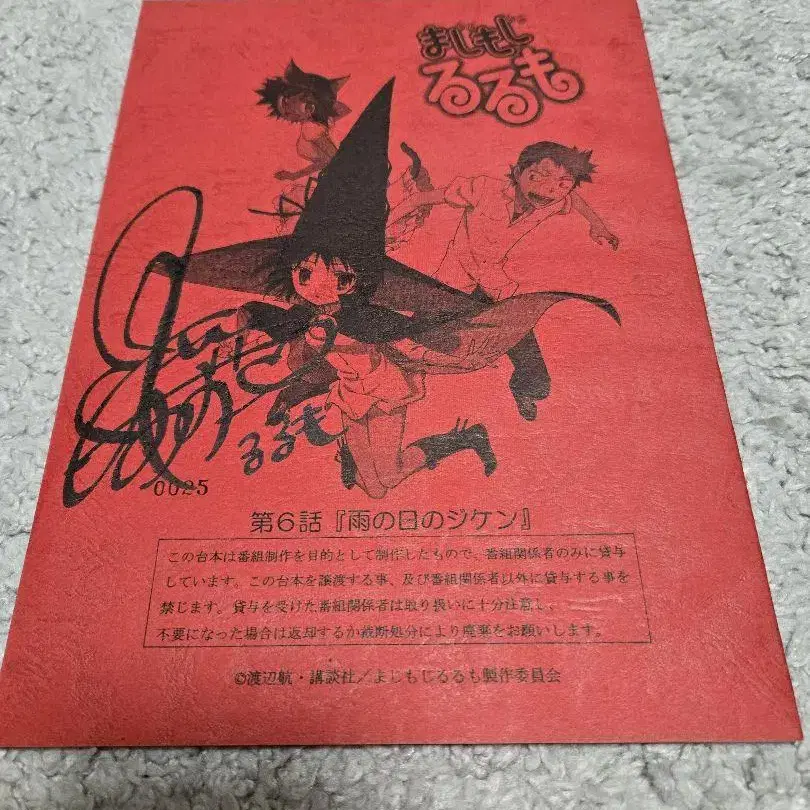 まじもじ
るるも
るるも
0025
第6話『雨の日のジケン』
この台本は番組制作を目的として制作したもので、番組関係者のみに貸与
しています。この台本を譲渡する事、及び番組関係者以外に貸与する事を
禁じます。貸与を受けた番組関係者は取り扱いに十分注意し、
不要になった場合は返却するか裁断処分により廃棄をお願いします。
©渡辺航・講談社/まじもじるるも製作委員会